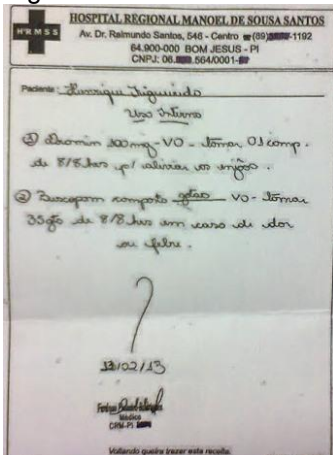 HRMSS
HOSPITAL REGIONAL MANOEL DE SOUSA SANTOS
Av. Dr. Raimundo Santos, 546 - Centro ☎(89) -1192
64.900-000 BOM JESUS - PI
CNPJ: 06. .564/0001-
Paciente: Henrique Figueiredo
Uso Interno
① Dramin 100mg - VO - tomar 01 comp.
de 8/8 hrs p/ aliviar os enjôos.
② Buscopam composto gotas VO - tomar
35gts de 8/8 hrs em caso de dor
ou febre.
13/02/13
Médico
CRM-PI
Voltando queira trazer esta receita.